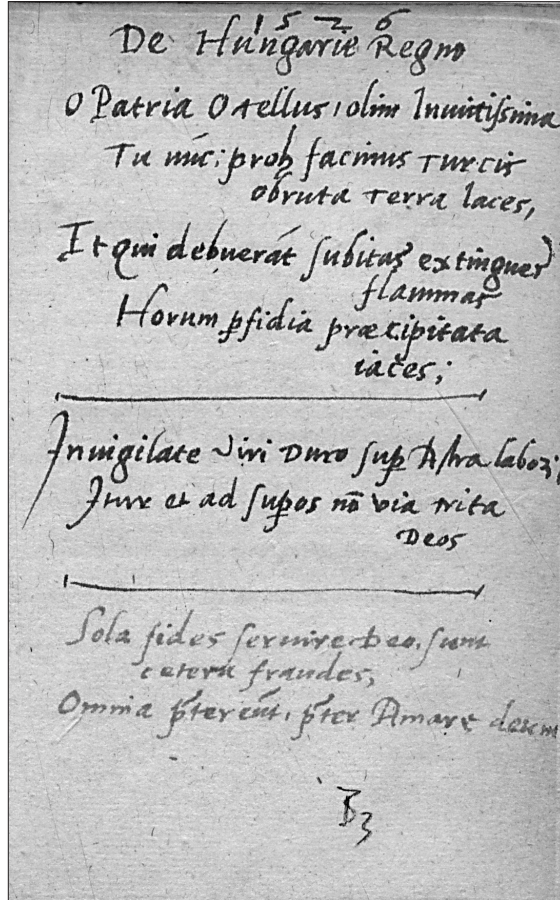 1 5 2 6
De Hungarie Regno
O Patria O tellus, olim Inuictissima
Tu nūc: proh facinus Turcis
obruta terra Iaces,
Et qui debuerāt subitas extinguere
flammas
Horum ꝑfidia præcipitata
iaces;
Inuigilate Viri Duro suꝑ Astra labori,
Iture et ad suꝑos nō via trita
Deos
Sola fides seruire Deo, sunt
cetera fraudes,
Omnia p̄tereūt, p̄ter Amare deum